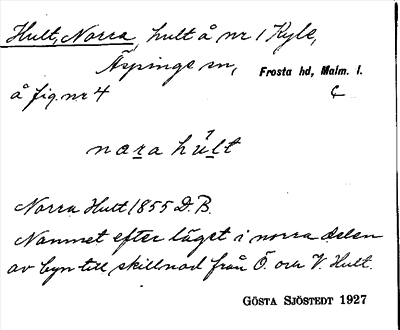 Hult, Norra, hult å nr 1 Kyle,
Äspinge sn, Frosta hd, Malm. l.
å fig. nr 4 C
nara hult
Norra Hult 1855 D.B.
Namnet efter läget i norra delen
av byn till skillnad från Ö. och V. Hult.
GÖSTA SJÖSTEDT 1927